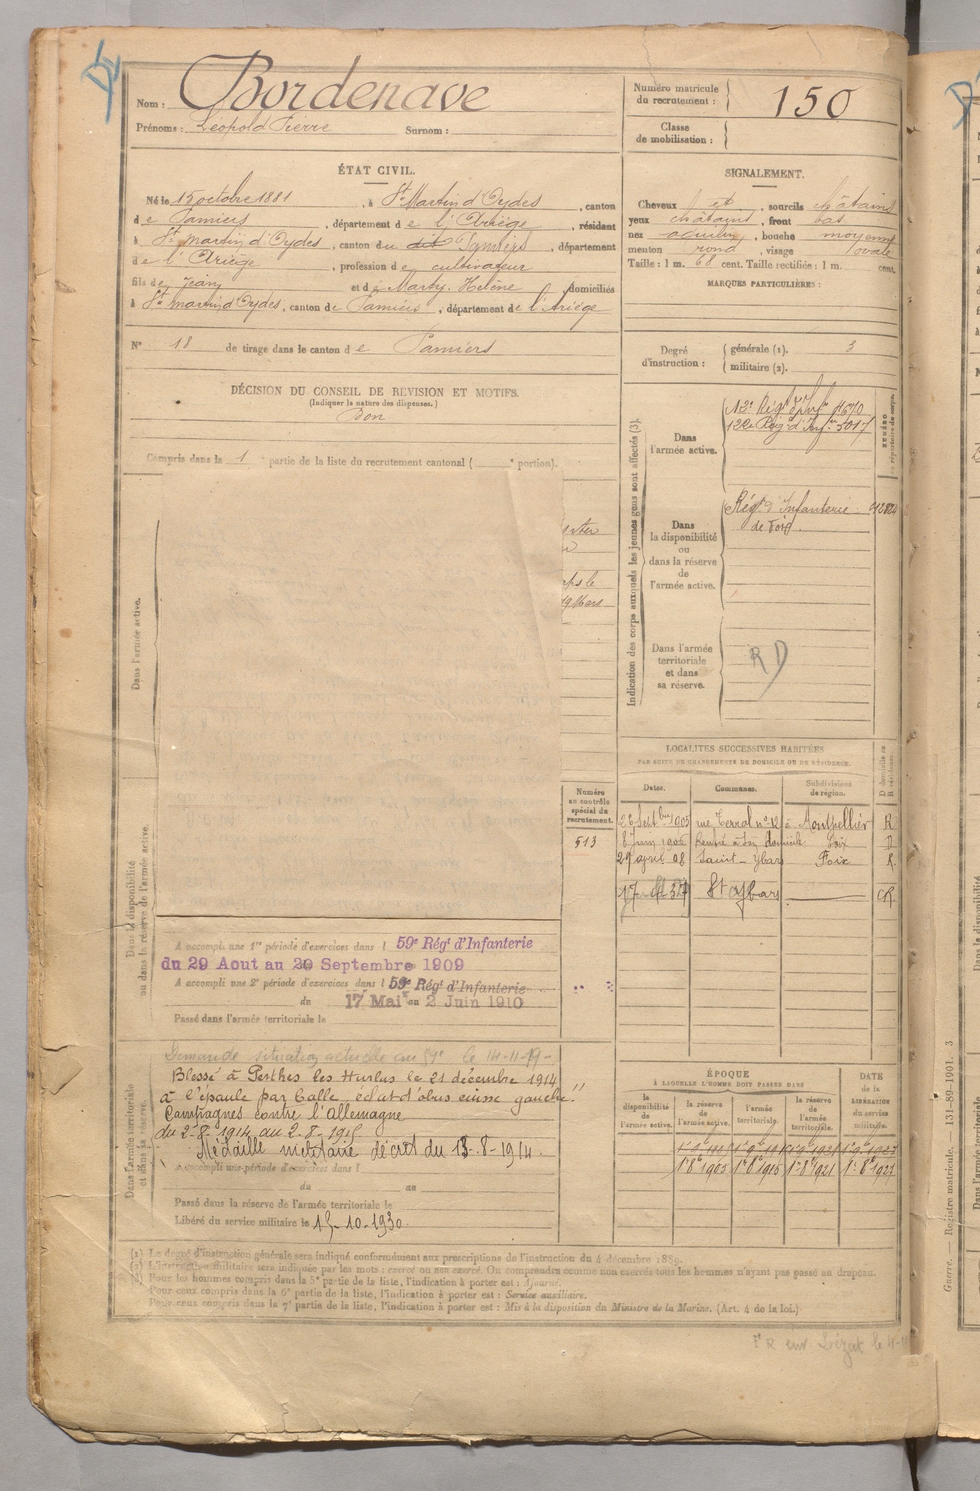 Nom : Bordenave
Prénoms : Léopold Pierre Surnom :
Numéro matricule
du recrutement : 150
Classe
de mobilisation :
ÉTAT CIVIL.
Né le 15 octobre 1881, à St Martin d'Oydes, canton
de Pamiers, département de l'Ariège, résidant
à St martin d'Oydes, canton du dit Pamiers, département
de l'Ariège, profession de cultivateur
fils de Jean et de Marty Helène domiciliés
à St martin d'Oydes, canton de Pamiers, département de l'Ariège
N° 18 de tirage dans le canton de Pamiers
SIGNALEMENT.
Cheveux et, sourcils châtains
yeux châtains, front bas
nez aquilin, bouche moyenne
menton rond, visage ovale
Taille : 1 m. 68 cent. Taille rectifiée : 1 m. cent.
MARQUES PARTICULIÈRES :
Degré
d'instruction :
générale (1). 3
militaire (2).
DÉCISION DU CONSEIL DE REVISION ET MOTIFS.
(Indiquer la nature des dispenses.)
Bon
Compris dans la 1 e partie de la liste du recrutement cantonal ( e portion).
Indication des corps auxquels les jeunes gens sont affectés (3).
NUMÉRO
au répertoire du corps.
Dans
l'armée active.
12e Régt d'Inf.
122e Régt d'Infie 5017
Dans
la disponibilité
ou
dans la réserve
de
l'armée active.
Régt d'Infanterie
de Foix.
Dans l'armée
territoriale
et dans
sa réserve.
R D
Dans l'armée active.
ps le
19 Mars
LOCALITÉS SUCCESSIVES HABITÉES
PAR SUITE DE CHANGEMENTS DE DOMICILE OU DE RÉSIDENCE.
Dates. Communes. Subdivisions
de région. D domicile ou
R résidence.
26 Septbre 1905 rue Terral n° 12 à Montpellier R
8 Juin 1906 Rentré à son domicile Foix D
29 april 08 Saint-Ybars Foix R.
St Ybars
Numéro
au contrôle
spécial du
recrutement.
513
Dans la disponibilité
ou dans la réserve de l'armée active.
A accompli une 1re période d'exercices dans l 59e Régt d'Infanterie
du 29 Aout au 20 Septembre 1909
A accompli une 2e période d'exercices dans l 59e Régt d'Infanterie
du 17 Mai au 2 Juin 1910
Passé dans l'armée territoriale le
Dans l'armée territoriale
et dans sa réserve.
Demande situation actuelle au 59e le 14-11-19-
Blessé à Perthes les Hurlus le 21 décembre 1914
à l'épaule par balle, éclat d'obus cuisse gauche.
Campagnes contre l'Allemagne
du 2-8-1914 au 2-8-1915
Médaille militaire décret du 13-8-1914.
A accompli une période d'exercices dans l
du au
Passé dans la réserve de l'armée territoriale le
Libéré du service militaire le 15-10-1930.
ÉPOQUE
À LAQUELLE L'HOMME DOIT PASSER DANS
DATE
de la
LIBÉRATION
du service
militaire.
la
disponibilité
de
l'armée active.
la réserve
de
l'armée active.
l'armée
territoriale.
la réserve
de
l'armée
territoriale.
1r 8e 1905 1r 8e 1915 1r 8e 1921 1r 8e 1927
(1) Le degré d'instruction générale sera indiqué conformément aux prescriptions de l'instruction du 4 décembre 1889.
(2) L'instruction militaire sera indiquée par les mots : exercé ou non exercé. On comprendra comme non exercés tous les hommes n'ayant pas passé au drapeau.
Pour les hommes compris dans la 5e partie de la liste, l'indication à porter est : Ajourné.
Pour ceux compris dans la 6e partie de la liste, l'indication à porter est : Service auxiliaire.
Pour ceux compris dans la 7e partie de la liste, l'indication à porter est : Mis à la disposition du Ministre de la Marine. (Art. 4 de la loi.)
Guerre. — Registre matricule. — 131-89-1901. 3